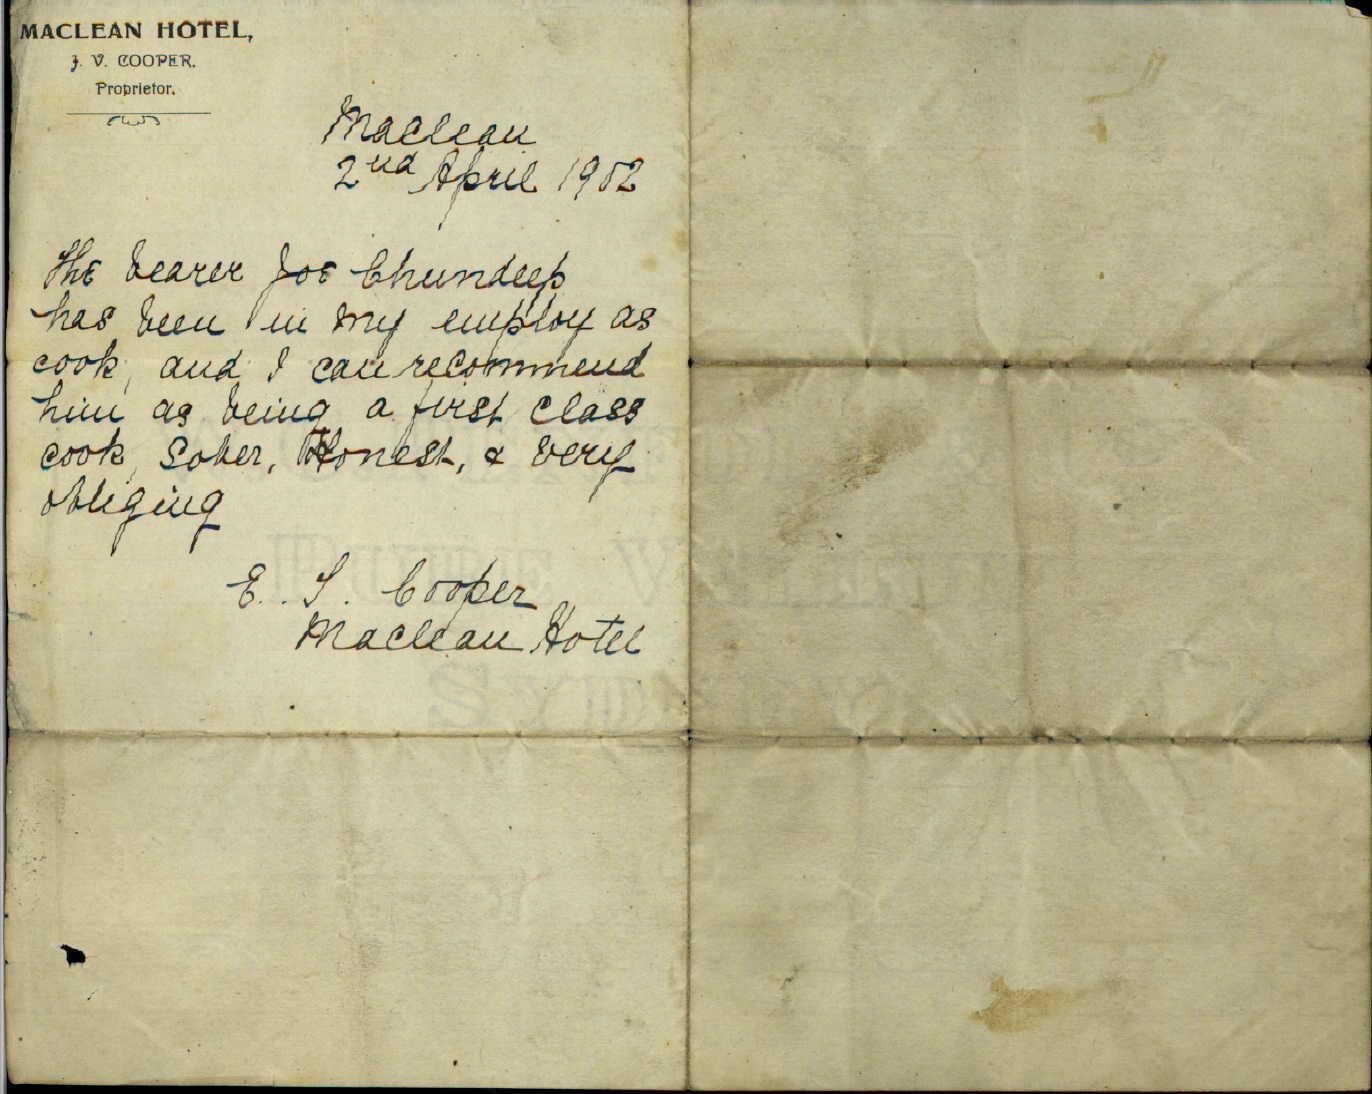 MACLEAN HOTEL,
J. V. COOPER.
Proprietor.
Maclean
2nd April 1902
The bearer Joe Chundeep
has been in my employ as
cook, and I can recommend
him as being a first class
cook, Sober, Honest, & very
obliging
E. S. Cooper
Maclean Hotel
PURE
SYDNEY